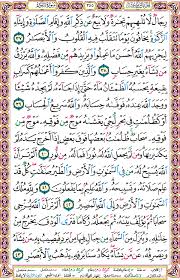 رِجَالٌ لَّا تُلْهِيهِمْ تِجَارَةٌ وَلَا بَيْعٌ عَن ذِكْرِ اللَّهِ وَإِقَامِ الصَّلَاةِ وَإِيتَاءِ
الزَّكَاةِ يَخَافُونَ يَوْمًا تَتَقَلَّبُ فِيهِ الْقُلُوبُ وَالْأَبْصَارُ ٣٧
لِيَجْزِيَهُمُ اللَّهُ أَحْسَنَ مَا عَمِلُوا وَيَزِيدَهُم مِّن فَضْلِهِ وَاللَّهُ يَرْزُقُ
مَن يَشَاءُ بِغَيْرِ حِسَابٍ ٣٨ وَالَّذِينَ كَفَرُوا أَعْمَالُهُمْ كَسَرَابٍ
بِقِيعَةٍ يَحْسَبُهُ الظَّمْآنُ مَاءً حَتَّىٰ إِذَا جَاءَهُ لَمْ يَجِدْهُ شَيْئًا
وَوَجَدَ اللَّهَ عِندَهُ فَوَفَّاهُ حِسَابَهُ وَاللَّهُ سَرِيعُ الْحِسَابِ ٣٩
أَوْ كَظُلُمَاتٍ فِي بَحْرٍ لُّجِّيٍّ يَغْشَاهُ مَوْجٌ مِّن فَوْقِهِ مَوْجٌ مِّن
فَوْقِهِ سَحَابٌ ظُلُمَاتٌ بَعْضُهَا فَوْقَ بَعْضٍ إِذَا أَخْرَجَ يَدَهُ
لَمْ يَكَدْ يَرَاهَا وَمَن لَّمْ يَجْعَلِ اللَّهُ لَهُ نُورًا فَمَا لَهُ مِن نُّورٍ ٤٠
أَلَمْ تَرَ أَنَّ اللَّهَ يُسَبِّحُ لَهُ مَن فِي السَّمَاوَاتِ وَالْأَرْضِ وَالطَّيْرُ صَافَّاتٍ
كُلٌّ قَدْ عَلِمَ صَلَاتَهُ وَتَسْبِيحَهُ وَاللَّهُ عَلِيمٌ بِمَا يَفْعَلُونَ ٤١ وَلِلَّهِ مُلْكُ
السَّمَاوَاتِ وَالْأَرْضِ وَإِلَى اللَّهِ الْمَصِيرُ ٤٢ أَلَمْ تَرَ أَنَّ اللَّهَ
يُزْجِي سَحَابًا ثُمَّ يُؤَلِّفُ بَيْنَهُ ثُمَّ يَجْعَلُهُ رُكَامًا فَتَرَى الْوَدْقَ يَخْرُجُ
مِنْ خِلَالِهِ وَيُنَزِّلُ مِنَ السَّمَاءِ مِن جِبَالٍ فِيهَا مِن بَرَدٍ فَيُصِيبُ بِهِ
مَن يَشَاءُ وَيَصْرِفُهُ عَن مَّن يَشَاءُ يَكَادُ سَنَا بَرْقِهِ يَذْهَبُ بِالْأَبْصَارِ ٤٣